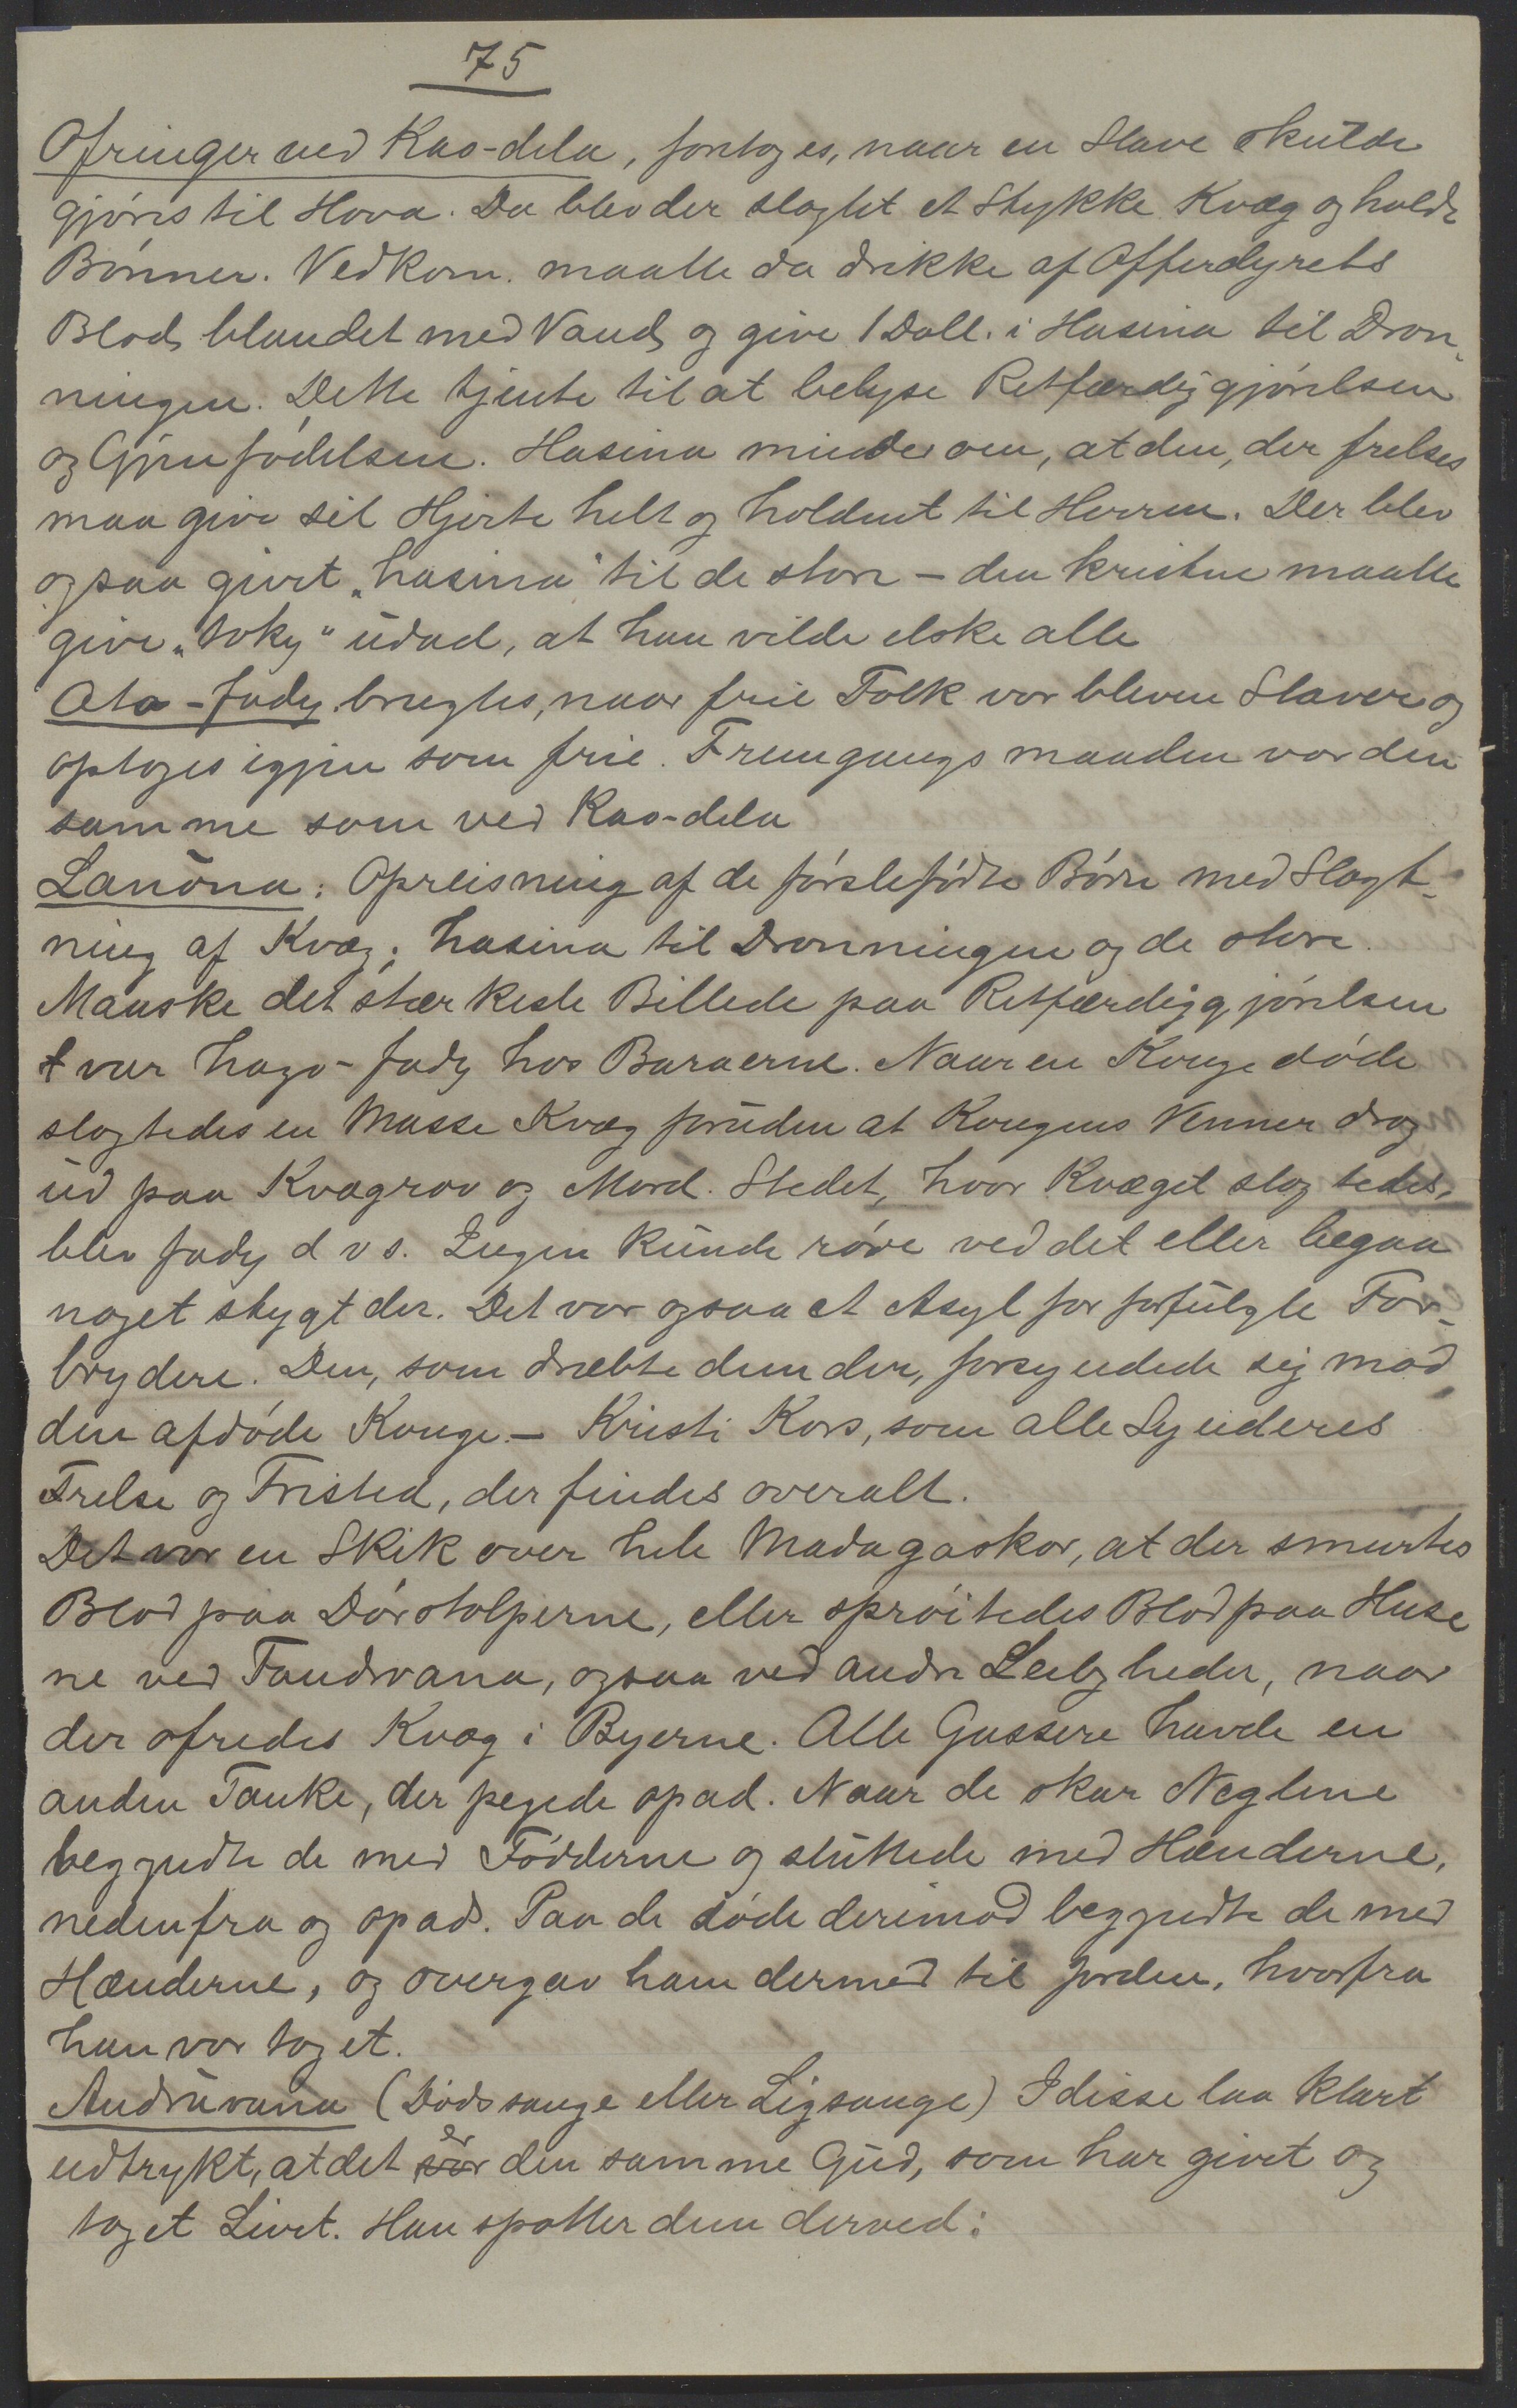 75
Ofringer ved Kao-dela, foretoges, naar en Slave skulde
gjøres til Hova. Da blev der slagtet et Stykke Kvæg og holdt
Bønner. Vedkom. maatte da drikke af Offerdyrets
Blod blandet med Vand og give 1 Doll. i Hasina til Dron-
ningen. Dette tjente til at belyse Retfærdiggjørelsen
og Gjenfødelsen. Hasina minder om, at den, der frelses
maa give sit Hjerte helt og holdent til Herren. Der blev
ogsaa givet "hasina" til de store - den kristne maatte
give "toky" udad, at han vilde elske alle
Ala-fady brugtes, naar frie Folk var bleven Slaver og
optoges igjen som frie. Fremgangsmaaden var den
samme som ved Kao-dela
Lanona: Opreisning af de førstefødte Børn med Slagt-
ning af Kvæg; hasina til Dronningen og de store.
Manske det stærkeste Billede paa Retfærdiggjørelsen
var hazo-fady hos Baraerne. Naar en Konge døde
slagtedes en Masse Kvæg foruden at Kongens Venner drog
ud paa Kvægrov og Mord. Stedet, hvor Kvæget slagtedes,
blev fady d v s. Ingen kunde røre ved det eller begaa
noget stygt der. Det var ogsaa et Asyl for forfulgte For-
brydere. Den, som dræbte dem der, forsyndede sig mod
den afdøde Konge. - Kristi Kors, som alle Synderes
Frelse og Fristed, der findes overalt.
Det var en Skik over hele Madagaskar, at der smurtes
Blod paa Dørstolperne, eller sprøitedes Blod paa Huse
ne ved Fandroana, ogsaa ved andre Leiligheder, naar
der ofredes Kvæg i Byerne. Alle Gassere havde en
anden Tanke, der pegede opad. Naar de skar Neglene
begyndte de med Fødderne og sluttede med Hænderne,
nedenfra og opad. Paa de døde derimod begyndte de med
Hænderne, og overgav ham dermed til Jorden, hvorfra
han var taget.
Andruvana (Dødssange eller Ligsange) I disse laa klart
udtrykt, at det er den samme Gud, som har givet og
taget Livet. Han spotter dem derved: